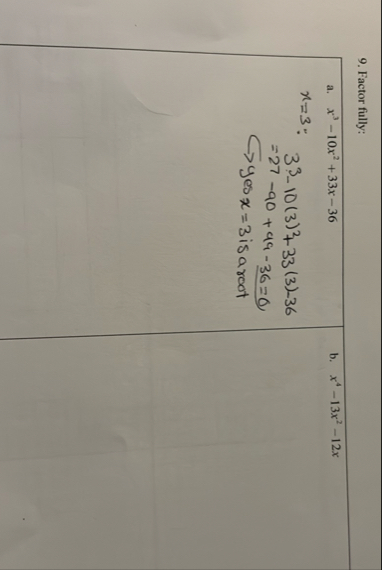 9. Factor fully:
a. x³ − 10x² + 33x − 36
x=3:
3³-10(3)²+33(3)-36
=27-90+99-36=0
↳yes x=3 is a root
b. x⁴ − 13x² − 12x